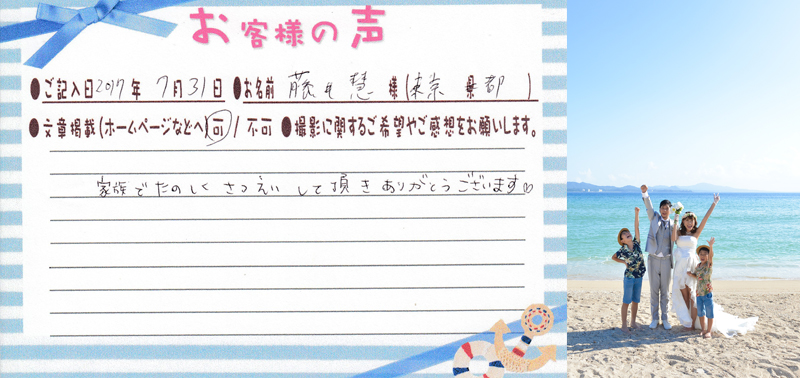 お客様の声
●ご記入日2017年 7月31日 ●お名前 藤井 慧 様(東京 県都 )
●文章掲載(ホームページなどへ)可/不可 ●撮影に関するご希望やご感想をお願いします。
家族でたのしくさつえいして頂きありがとうございます♡